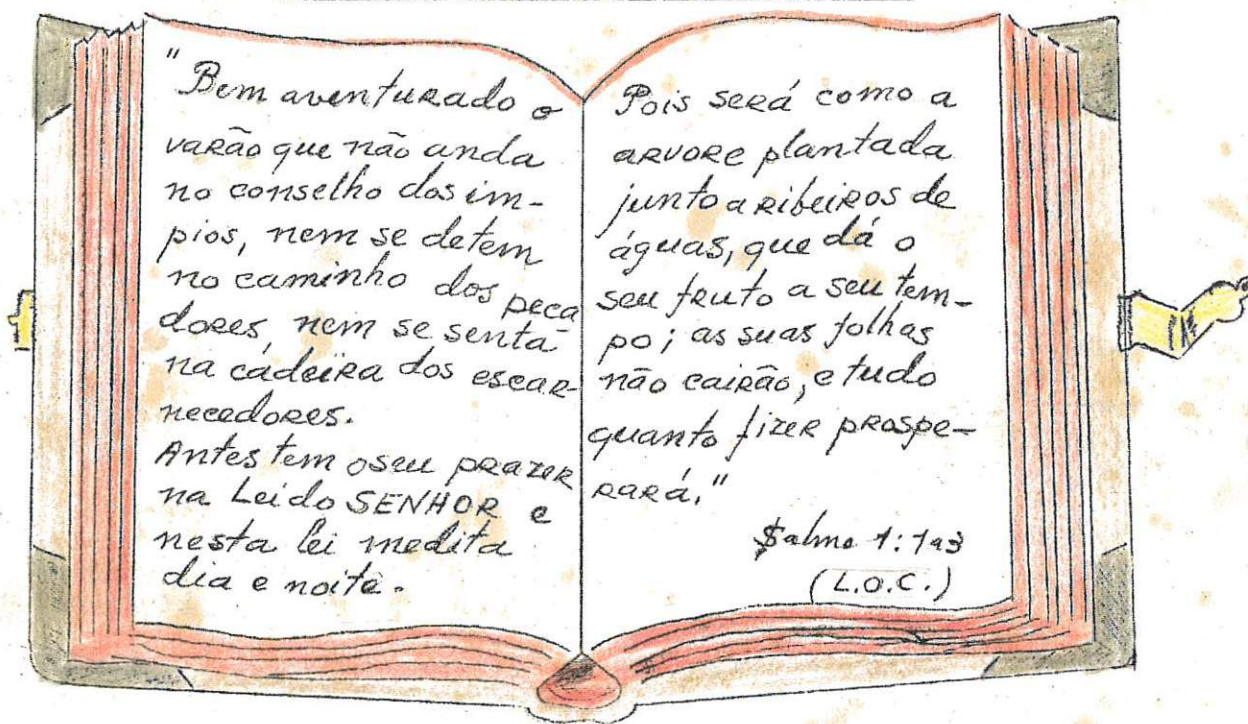 "Bem aventurado o
varão que não anda
no conselho dos im-
pios, nem se detem
no caminho dos peca
dores, nem se senta
na cadeira dos escar-
necedores.
Antes tem o seu prazer
na Lei do SENHOR e
nesta lei medita
dia e noite.
Pois será como a
arvore plantada
junto a ribeiros de
águas, que dá o
seu fruto a seu tem-
po; as suas folhas
não cairão, e tudo
quanto fizer prospe-
rará."
Salmo 1:1a3
(L.O.C.)